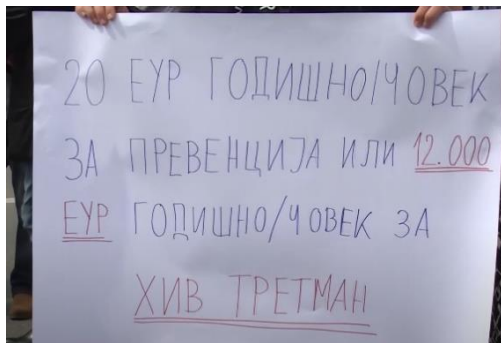 20 ЕУР ГОДИШНО/ЧОВЕК
ЗА ПРЕВЕНЦИЈА ИЛИ 12.000
ЕУР ГОДИШНО/ЧОВЕК ЗА
ХИВ ТРЕТМАН